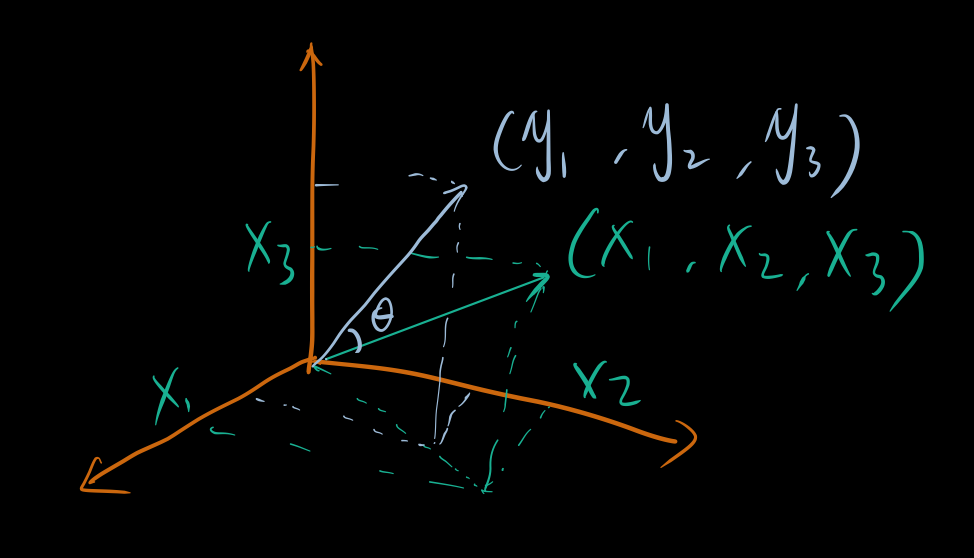 (y₁, y₂, y₃)
X₃
(X₁, X₂, X₃)
θ
X₁
X₂